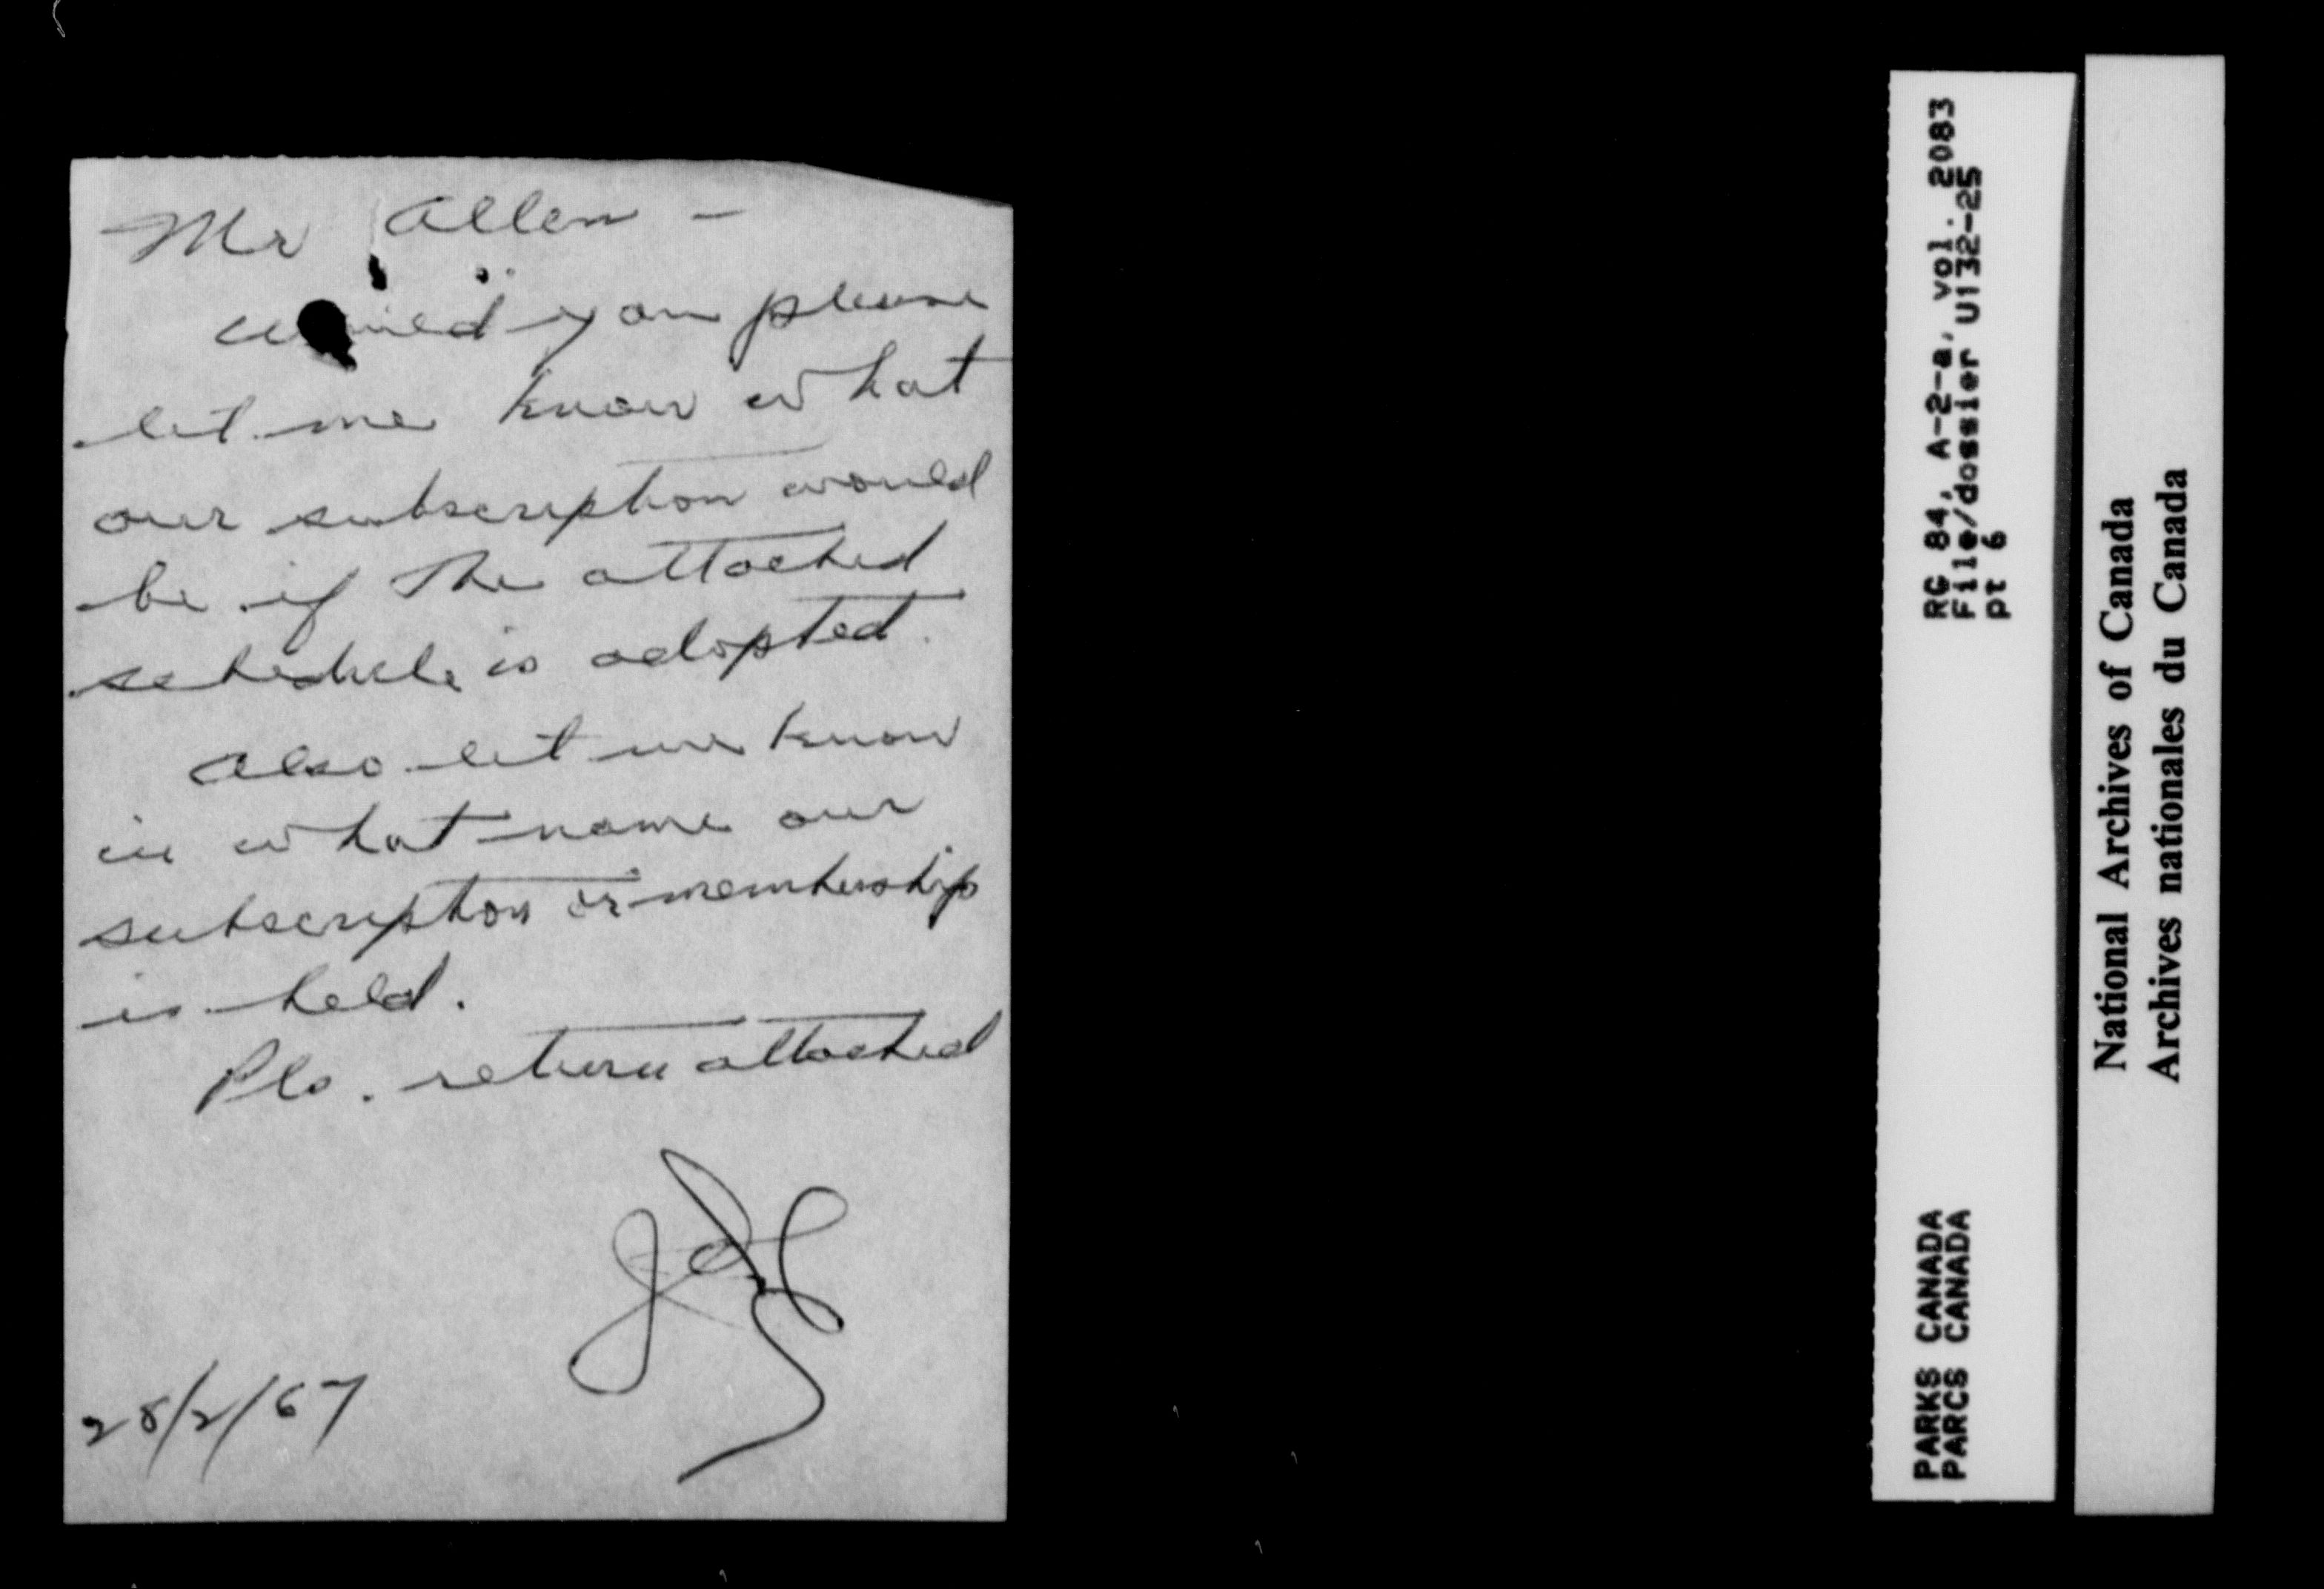 Mr Allen -
would you please
let me know what
our subscription would
be if the attached
schedule is adopted.
Also let me know
in what name our
subscription or membership
is held.
Pls. return attached
28/2/67
RG 84, A-2-a, vol. 2083
File/dossier U132-25
pt 6
PARKS CANADA
PARCS CANADA
National Archives of Canada
Archives nationales du Canada